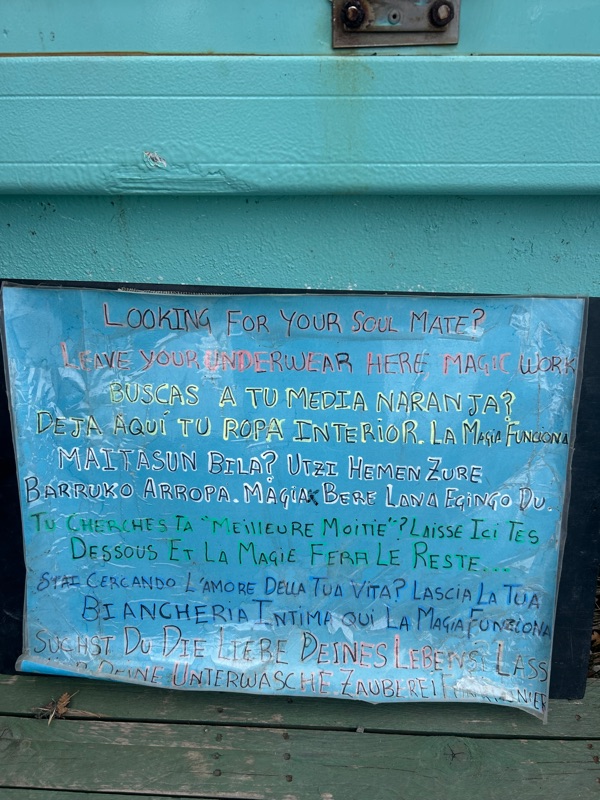 LOOKING FOR YOUR SOUL MATE?
LEAVE YOUR UNDERWEAR HERE MAGIC WORK
BUSCAS A TU MEDIA NARANJA?
DEJA AQUÍ TU ROPA INTERIOR. LA MAGIA FUNCIONA
MAITASUN BILA? UTZI HEMEN ZURE
BARRUKO ARROPA. MAGIAK BERE LANA EGINGO DU.
TU CHERCHES TA "MEILLEURE MOITIE"? LAISSE ICI TES
DESSOUS ET LA MAGIE FERA LE RESTE...
STAI CERCANDO L'AMORE DELLA TUA VITA? LASCIA LA TUA
BIANCHERIA INTIMA QUI LA MAGIA FUNZIONA
SUCHST DU DIE LIEBE DEINES LEBENS? LASS
DEINE UNTERWASCHE ZAUBEREI